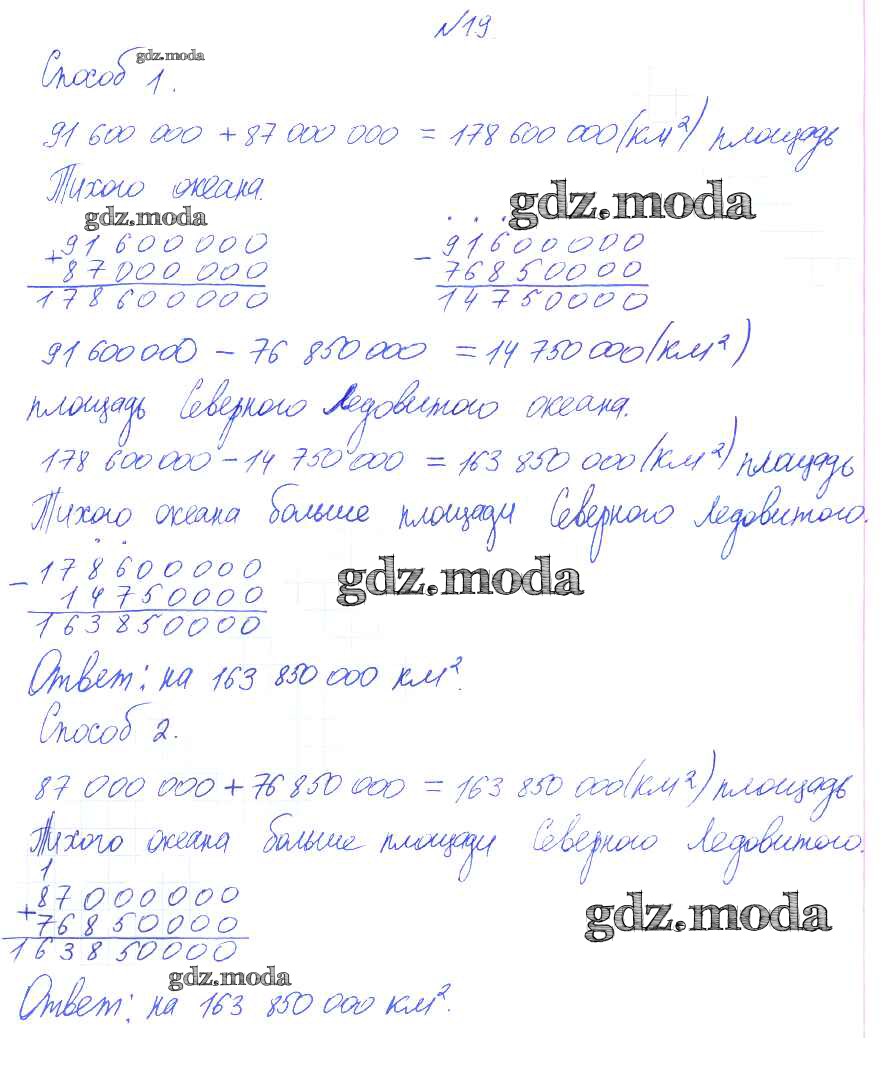 №19
gdz.moda
Способ 1.
91 600 000 + 87 000 000 = 178 600 000 (км²) площадь
Тихого океана.
gdz.moda
gdz.moda
+ 91600000
87000000
178600000
- 91600000
76850000
14750000
91 600 000 - 76 850 000 = 14 750 000 (км²)
площадь Северного Ледовитого океана.
178 600 000 - 14 750 000 = 163 850 000 (км²) площадь
Тихого океана больше площади Северного Ледовитого.
- 178600000
14750000
163850000
gdz.moda
Ответ: на 163 850 000 км².
Способ 2.
87 000 000 + 76 850 000 = 163 850 000 (км²) площадь
Тихого океана больше площади Северного Ледовитого.
1
+ 87000000
76850000
163850000
gdz.moda
gdz.moda
Ответ: на 163 850 000 км².